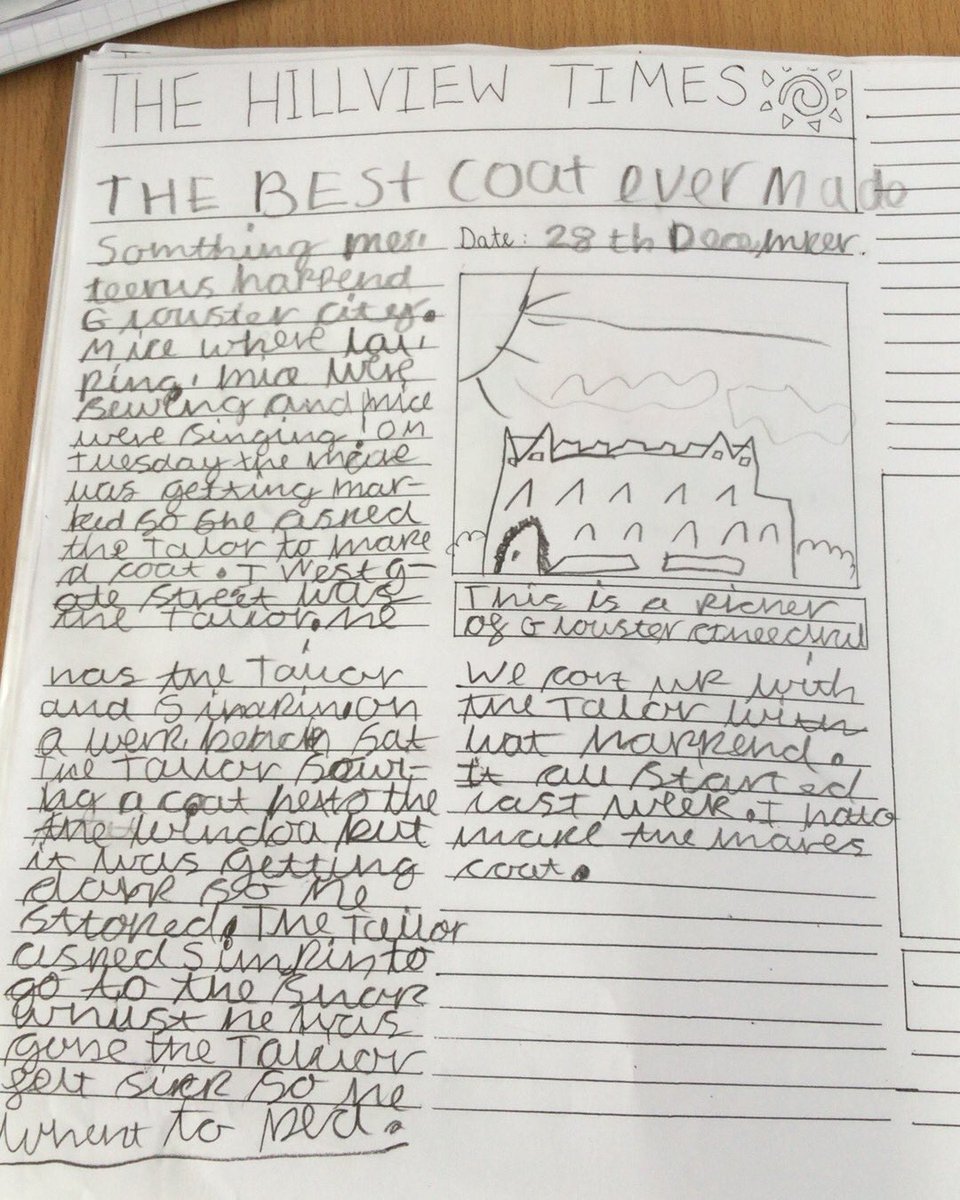 THE HILLVIEW TIMES
THE BEST coat ever Made
Date: 28th December.
Somthing mes
teerus happend
Glouster city.
Mice where
mice were
Sewing and mice
were singing! On
Tuesday the
was getting mar-
ked so she asked
the Tailor to make
a coat. I Westg-
ate Street was
the Tailor. he
This is a picher
of Glouster
was the Tailor
and Simpkin, on
a werk bench sat
the Tailor sowi-
ng a coat nexto the
the windoa but
it was getting
dark so he
stoped. The Tailor
asked Simpkin to
go to the shop
whilst he was
gone the Tailor
felt sick so he
whent to bed.
We cort up with
the Tailor with
wat happend.
It all started
last week. I had to
make the mares
coat.